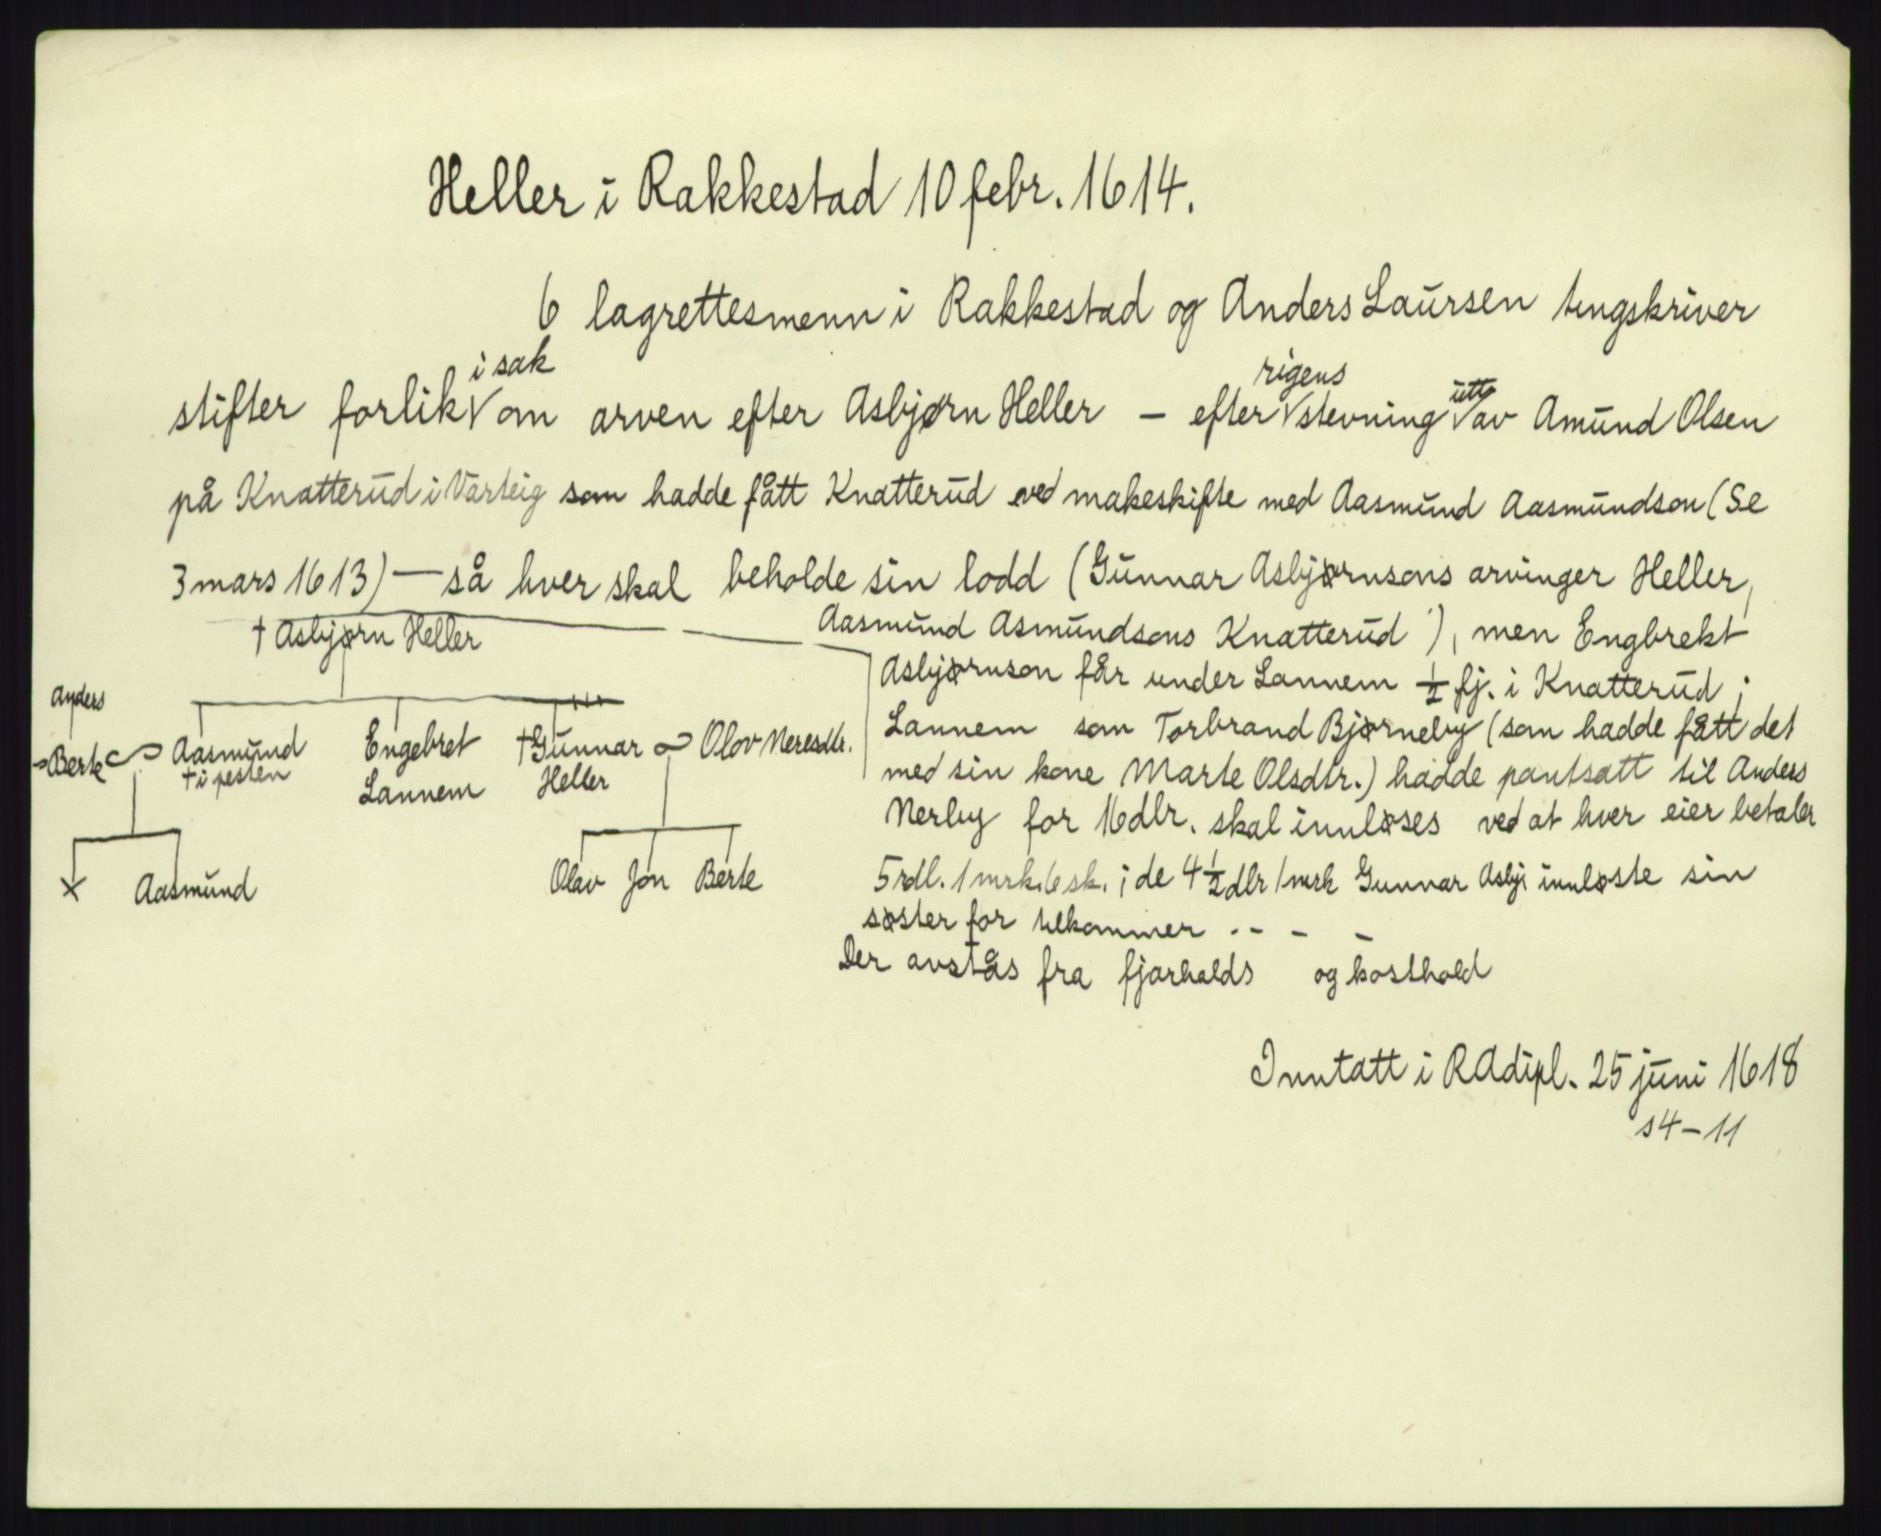 Heller i Rakkestad 10 febr. 1614.
6 lagrettesmenn i Rakkestad og Anders Laursen tingskriver
stifter forlik i sak om arven efter Asbjørn Heller – efter rigens stevning utt av Amund Olsen
på Knatterud i Varteig som hadde fått Knatterud ved makeskifte med Aasmund Aasmundson (Se
3 mars 1613) — så hver skal beholde sin lodd (Gunnar Asbjørnsons arvinger Heller,
Aasmund Asmundsons Knatterud), men Engbrekt
Asbjørnson får under Lannem ½ fj. i Knatterud ;
Lannem som Torbrand Bjørneby (som hadde fått det
med sin kone Marte Olsdtr.) hadde pantsatt til Anders
Nerby for 16 dlr. skal innløses ved at hver eier betaler
5 rdl. 1 mrk. 6 sk. ; de 4 ½ dlr 1 mrk Gunnar Asbj. innløste sin
søster for tilkommer -- – –
Der avstås fra fjorhalds og kosthold
† Asbjørn Heller
Anders
Berte Aasmund Engebret † Gunnar Olov Neresdtr.
† i pesten Lannem Heller
x Aasmund Olav Jon Berte
Inntatt i RAdipl. 25 juni 1618
s4–11